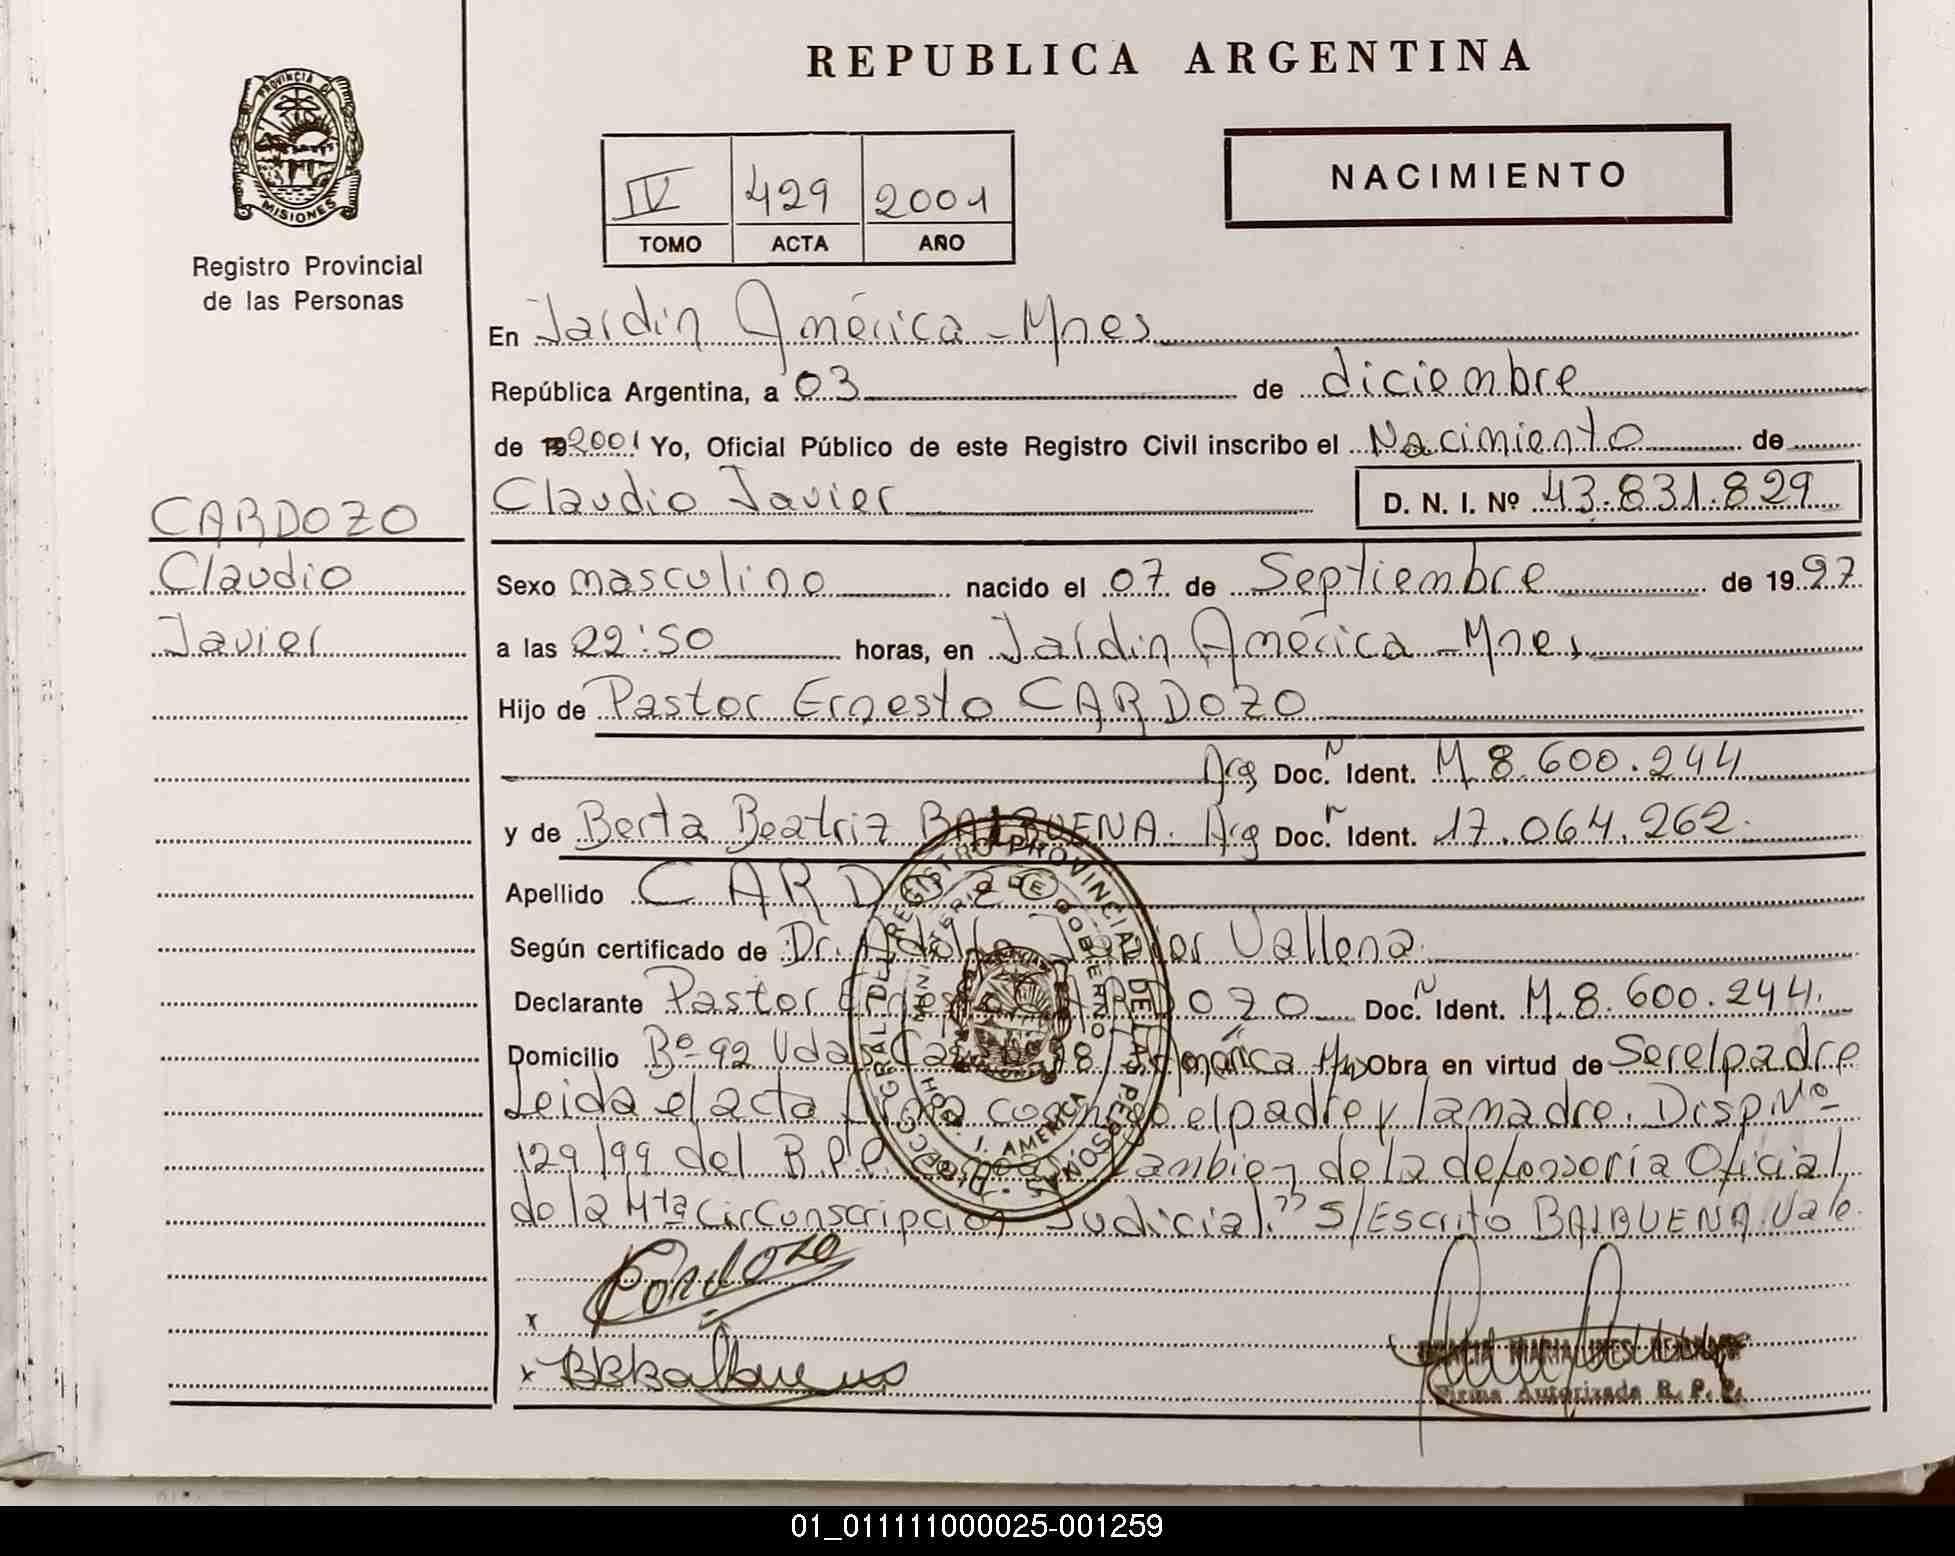 REPUBLICA ARGENTINA
PROVINCIA DE
MISIONES
Registro Provincial
de las Personas
IV 429 2001
TOMO ACTA AÑO
NACIMIENTO
En Jardín América - Mnes
República Argentina, a 03 de diciembre
de 19 2001 Yo, Oficial Público de este Registro Civil inscribo el Nacimiento de
Claudio Javier D. N. I. Nº 43.831.829
CARDOZO
Claudio
Javier
Sexo masculino nacido el 07 de Septiembre de 1997
a las 22:50 horas, en Jardín América - Mnes
Hijo de Pastor Ernesto CARDOZO
Arg Doc. N Ident. M 8.600.244
y de Berta Beatriz BALBUENA. Arg Doc. N Ident. 17.064.262.
Apellido CARDOZO
Según certificado de Dr. Javier Vallena.
Declarante Pastor Ernesto CARDOZO Doc. N Ident. M.8.600.244.
Domicilio Bº 92 Vdas Casa 78 J. América Obra en virtud de Ser el padre
Leida el acta firma conmigo el padre y la madre. Disp. Nº
129/99 del R.P.P. también de la defensoría Oficial
de la 4ta circunscripción Judicial." S/Escrito BALBUENA. Vale.
DIRECC. GRAL DEL REGISTRO PROVINCIAL DE LAS PERSONAS
MINISTERIO DE GOBIERNO
J. AMERICA
Cardozo
x
x BBBalbuena
MARIA INES
Firma Autorizada R. P. P.
01_011111000025-001259